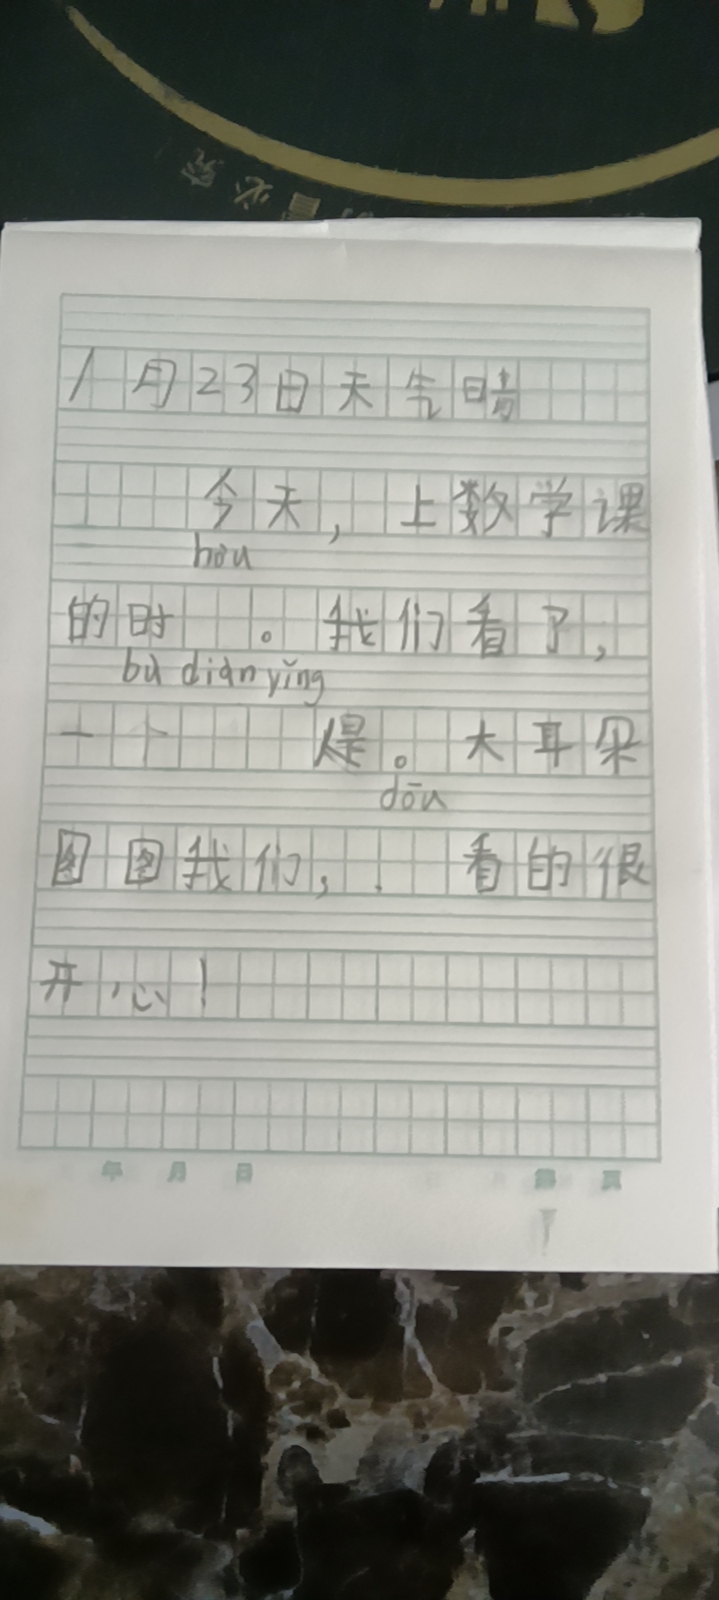 1月23日天气晴
今天，上数学课
hòu
的时。我们看了，
bù diàn yǐng
一个是。大耳朵
dōu
图图我们，.看的很
开心！
年 月 日 第 页